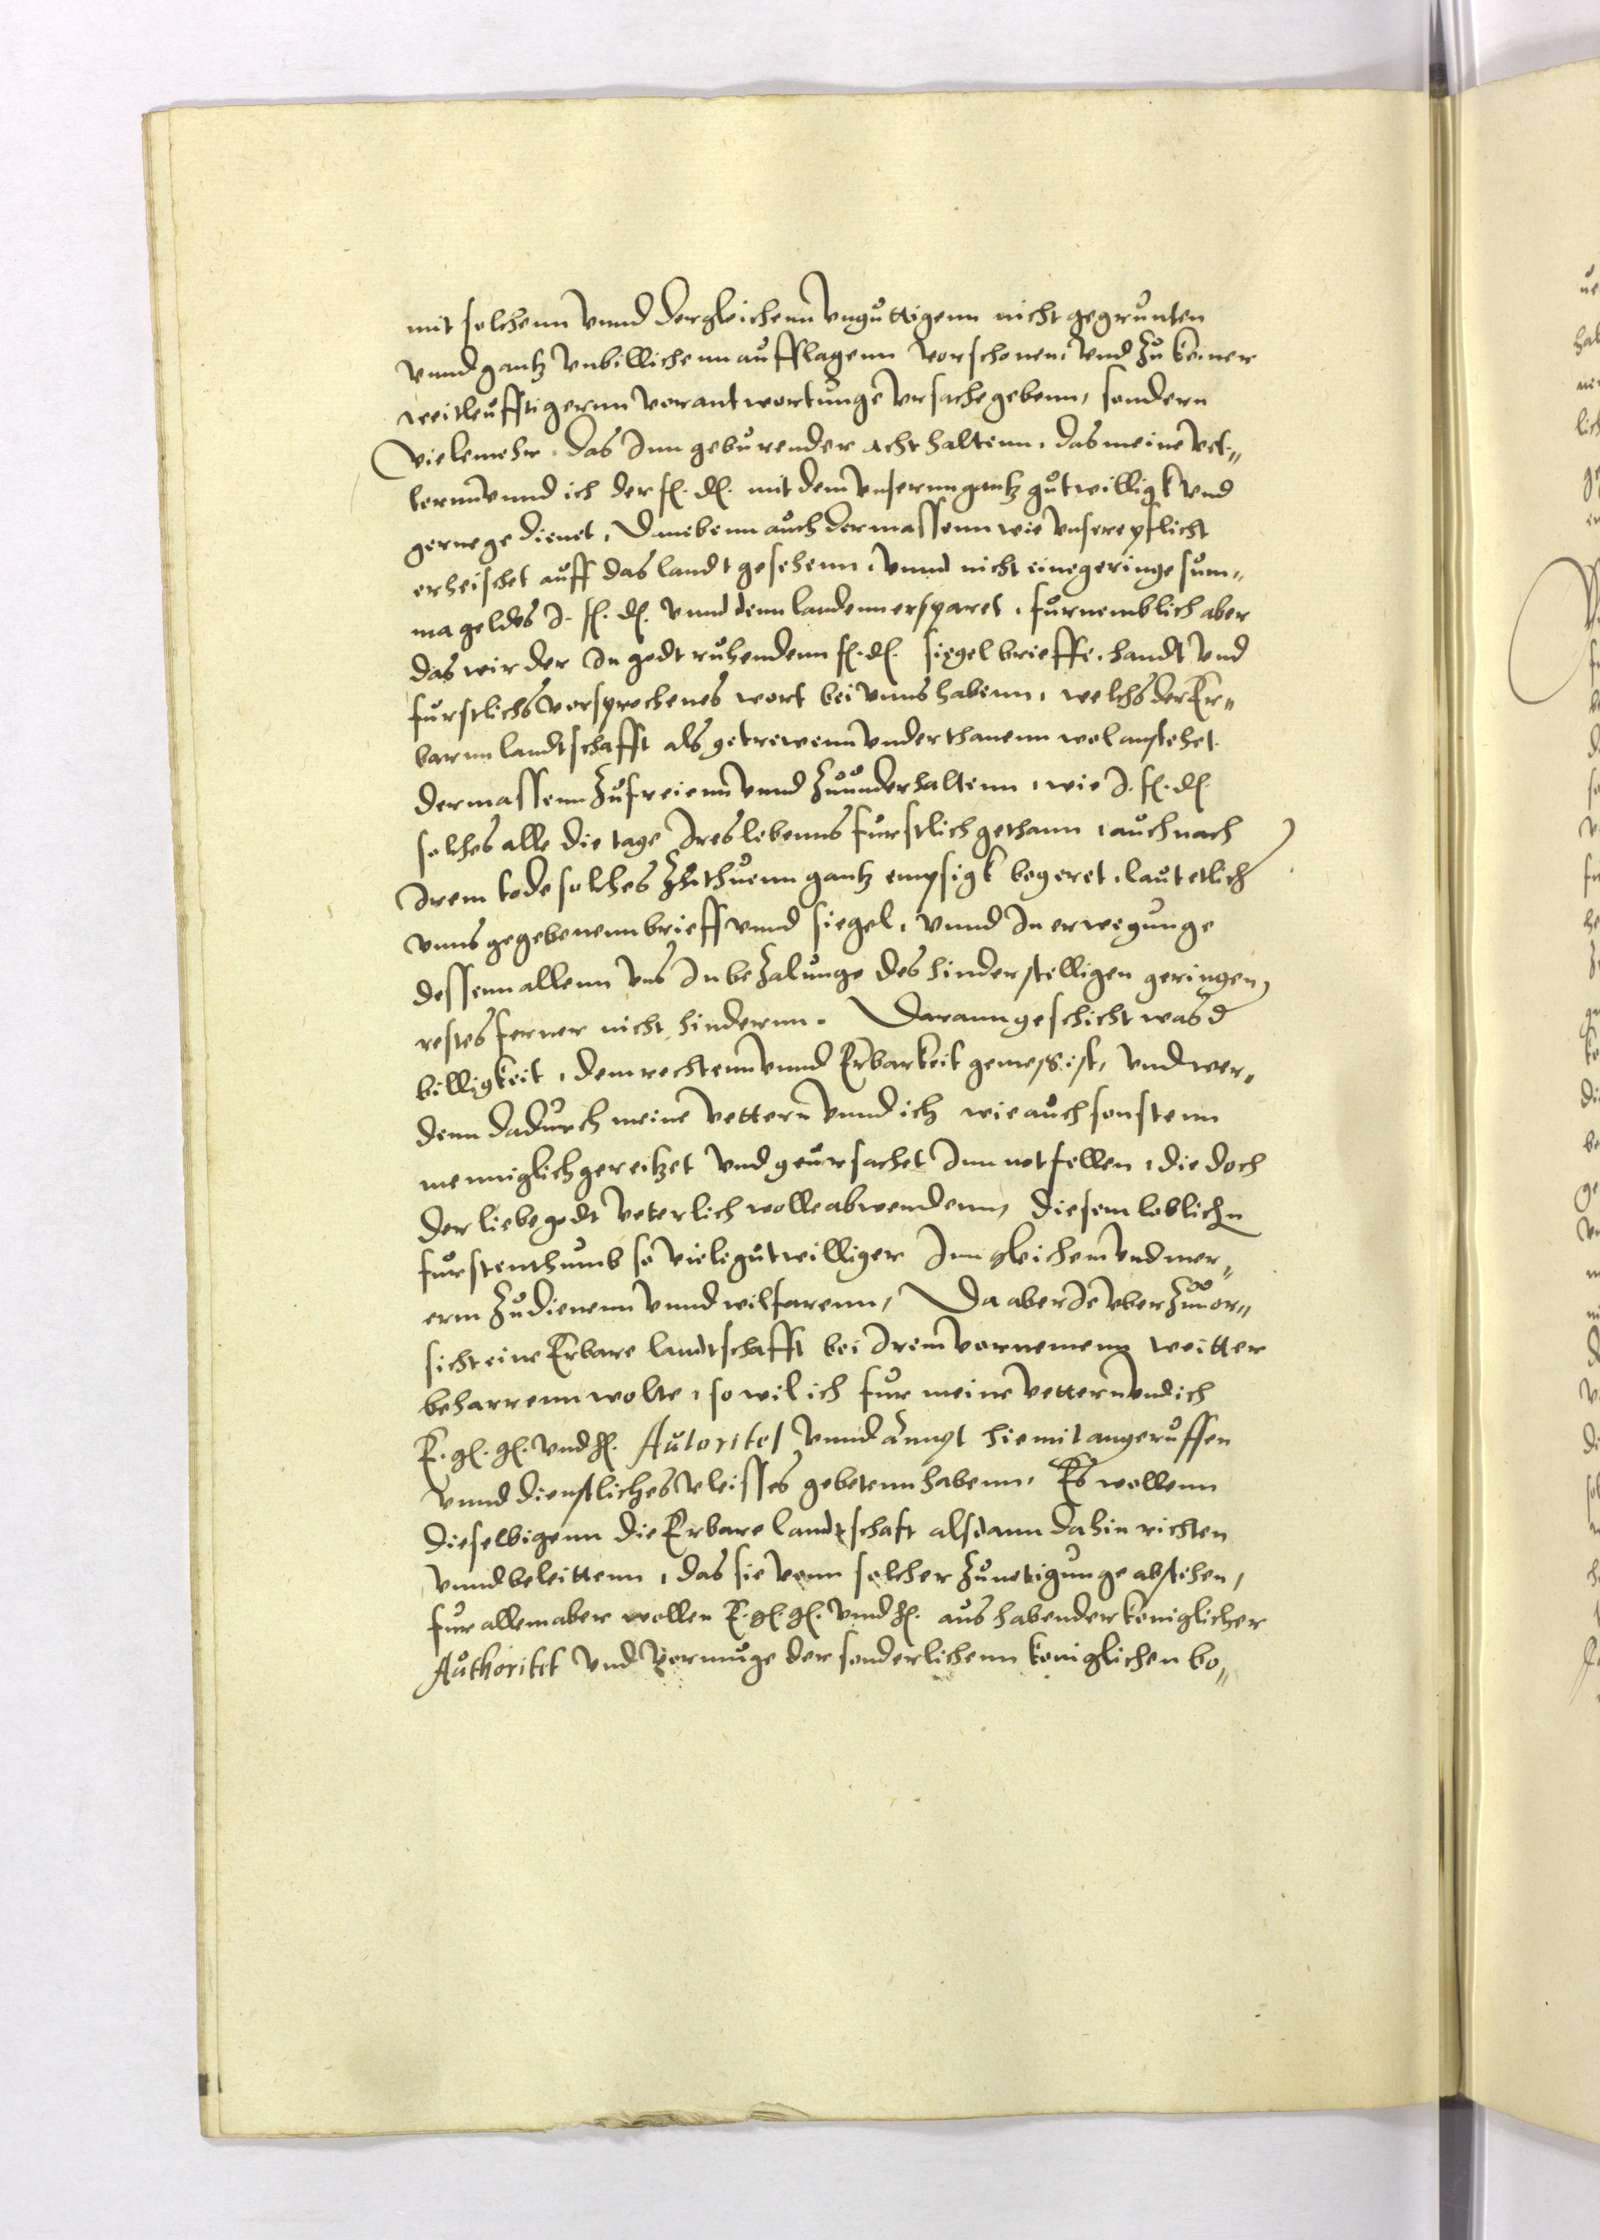 mit solchenn vnnd dergleichenn vnguttigenn nicht gegrunten
vnnd gantz vnbillichenn aufflagenn vorschonen, vnd zu keiner
weitleufftigernn vorantwortunge vrsache gebenn, sondern
vielemehr, das Inn geburender acht haltenn, das meine vet„
ternn vnnd ich der fl. dl. mit dem vnsernn gantz gutwilligk vnd
gerne gedienet, Danebenn auch dermassenn wie vnsere pflicht
erheischet auff das landt gesehenn, vnnd nicht eine geringe sum„
ma geldes I. fl. dl. vnnd denn landenn ersparet, furnemblich aber
das wir der In godt ruhendenn fl. dl. siegel brieffe, handt vnd
furstlichs vorsprochenes wort bei vnns habenn, welchs der Er„
barnn landtschafft als getrewenn vnderthanenn wol anstehet
dermassenn zufreienn vnnd zuunderhaltenn, wie I. fl. dl.
solches alle die tage Ires lebenns furstlich gethann, auch nach
Irem tode solches zu thuenn gantz empsigk begeret, laut etlich
vnns gegebenenn brieff vnnd siegel, vnnd In erwegunge
dessenn allenn vns In bezalunge des hinderstelligen geringen
restes ferner nicht hindernn. Darann geschicht was d
billigkeit, dem rechtenn vnnd Erbarkeit gemess ist, vnd wer„
denn dadurch meine vettern vnnd ich wie auch sonstenn
menniglich gereitzet vnd geursachet Inn notfellen, die doch
der liebe godt veterlich wolle abwendenn, diesem loblichn
furstenthumb so viele gutwilliger Inn gleichem vnd mer„
erm zudienenn vnnd wilfarenn, Da aber Ie vber zuuor„
sicht eine Erbare landtschafft bei Irem vornemenn weitter
beharrenn wolte, so wil ich fur meine vettern vnd ich
E. gl. gl. vnd hl. Autoritet vnnd ampt hiemit angeruffen
vnnd dienstliches vleisses gebetenn habenn, Es wollenn
dieselbigenn die Erbare landtschaft alsdann dahin richten
vnnd beleittenn, das sie vonn solcher zunotigunge abstehen,
fur allem aber wollen E. gl. gl. vnnd hl. aus habender koniglicher
Authoritet vnd vormuge der sonderlichenn koniglichen bo„